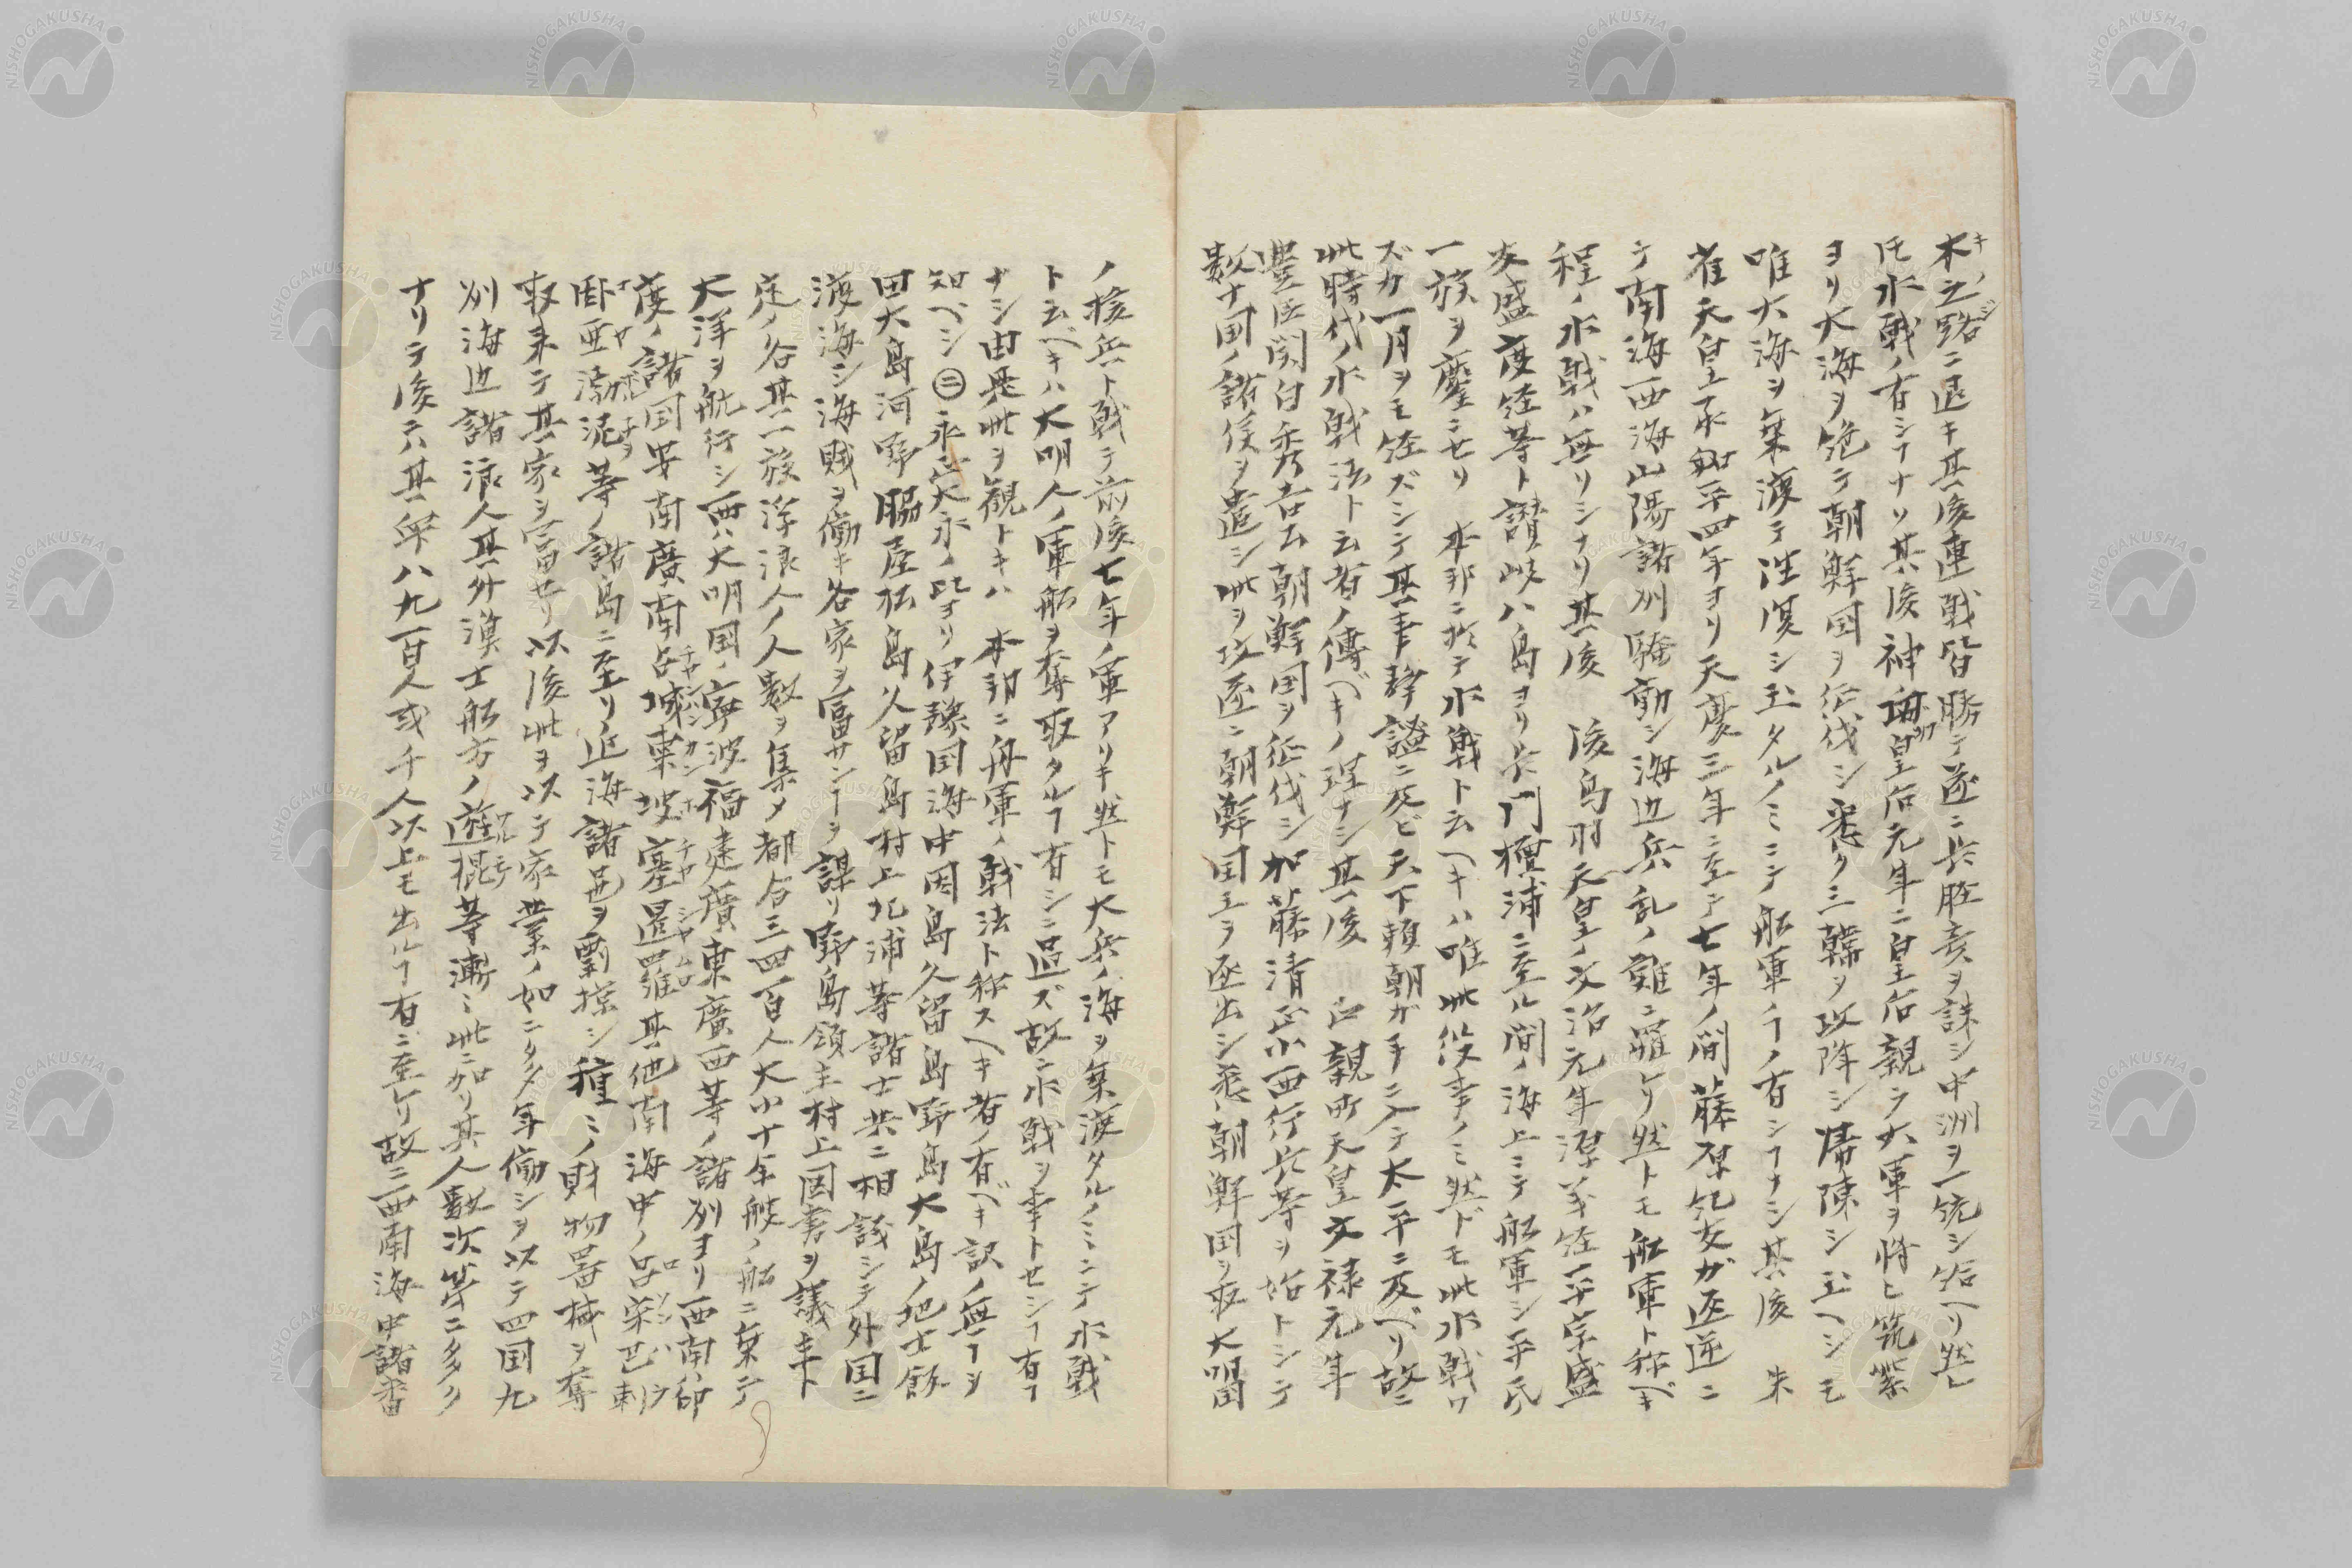 木之路ニ退キ其後連戦皆勝テ遂ニ長髄彦ヲ誅シ中洲ヲ一統シ給ヘリ然レ
𪜈水戦ノ有シヿナリ其後 神功皇后元年ニ皇后親ラ大軍ヲ将ヒ筑紫
ヨリ大海ヲ絶テ朝鮮国ヲ征伐シ悉ク三韓ヲ攻降シ帰陳シ玉ヘシモ
唯大海ヲ乗渡テ往復シ玉タルノミニテ船軍ノヿノ有シヿナシ其後 朱
雀天皇承平四年ヨリ天慶三年ニ至テ七年ノ間藤原純友ガ返逆ニ
テ南海西海山陽諸州騒動シ海辺兵乱ノ難ニ罹ケリ然トモ船軍ト称ベキ
程ノ水戦ハ無リシナリ其後 後鳥羽天皇ノ文治元年源義経平宗盛
友盛度経等ト讃岐八島ヨリ長門檀浦ニ至ル間ノ海上ニテ船軍シ平氏
一族ヲ鏖ニセリ 本邦ニ於テ水戦ト云ヘキハ唯此役事ノミ然ドモ此水戦ワ
ズカ一月ヲモ経ズシテ其事静謐ニ及ビ天下頼朝ガ手ニ入テ太平ニ及ベリ故ニ
此時代ノ水戦法ト云者ノ傳ベキノ理ナシ其後 正親町天皇文禄元年
豊臣関白秀吉公朝鮮国ヲ征伐シ加藤清正小西行長等ヲ始トシテ
数十国ノ諸侯ヲ遣シ此ヲ攻逐ニ朝鮮国王ヲ逐出シ悉朝鮮国ヲ取大明国
ノ援兵ト戦テ前後七年ノ軍アリキ然トモ大兵ノ海ヲ乗渡タルノミニテ水戦
ト云ベキハ大明人ノ軍船ヲ奪取タルヿ有シニ過ズ故ニ水戦ヲ事トセシヿ有ヿ
ナシ由是此ヲ観トキハ 本邦ニ舟軍ノ戦法ト称スヘキ者ノ有ベキ訳ノ無ヿヲ
知ベシ㊁永正大永ノ比ヨリ伊豫国海中因島久留島野島大島ノ地士飯
田大島河野脇屋松島久留島村上北浦等諸士共ニ相談シテ外国ニ
渡海シ海賊ヲ働キ各家ヲ富サンヿヲ謀リ野島領主村上図書ヲ議主ト
定ノ各其一族浮浪人ノ人数ヲ集メ都合三四百人大小十余艘ノ船ニ乗テ
大洋ヲ航行シ西ハ大明国ノ寧波福建廣東廣西等ノ諸州ヨリ西南ハ印
度ノ諸国安南廣南占城東坡塞暹羅其他南海中ノ呂宋芭剌
臥亜渤泥等ノ諸島ニ至リ近海諸邑ヲ剽掠シ種ミノ財物器械ヲ奪
取来テ其家ヲ富セリ以後此ヲ以テ家業ノ如ニタタ年働シヲ以テ四国九
州海辺諸浪人其外漁士船方ノ遊棍等漸ミ此ニ加リ其人数次第ニ多ク
ナリテ後ニハ其衆八九百人或千人以上モ出ルヿ有ニ至ケリ故ニ西南海中諸番